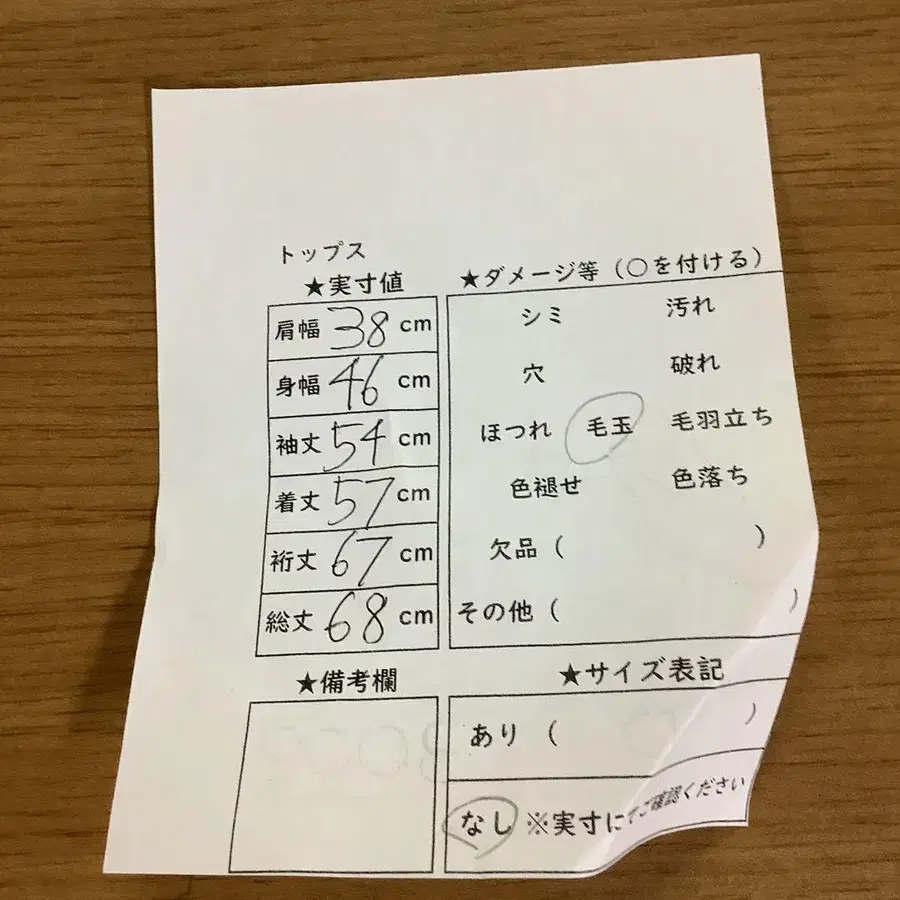 トップス
★実寸値
肩幅 38 cm
身幅 46 cm
袖丈 54 cm
着丈 57 cm
裄丈 67 cm
総丈 68 cm
★ダメージ等（○を付ける）
シミ 汚れ
穴 破れ
ほつれ 毛玉 毛羽立ち
色褪せ 色落ち
欠品（ ）
その他（ ）
★備考欄
★サイズ表記
あり（ ）
なし ※実寸にてご確認ください